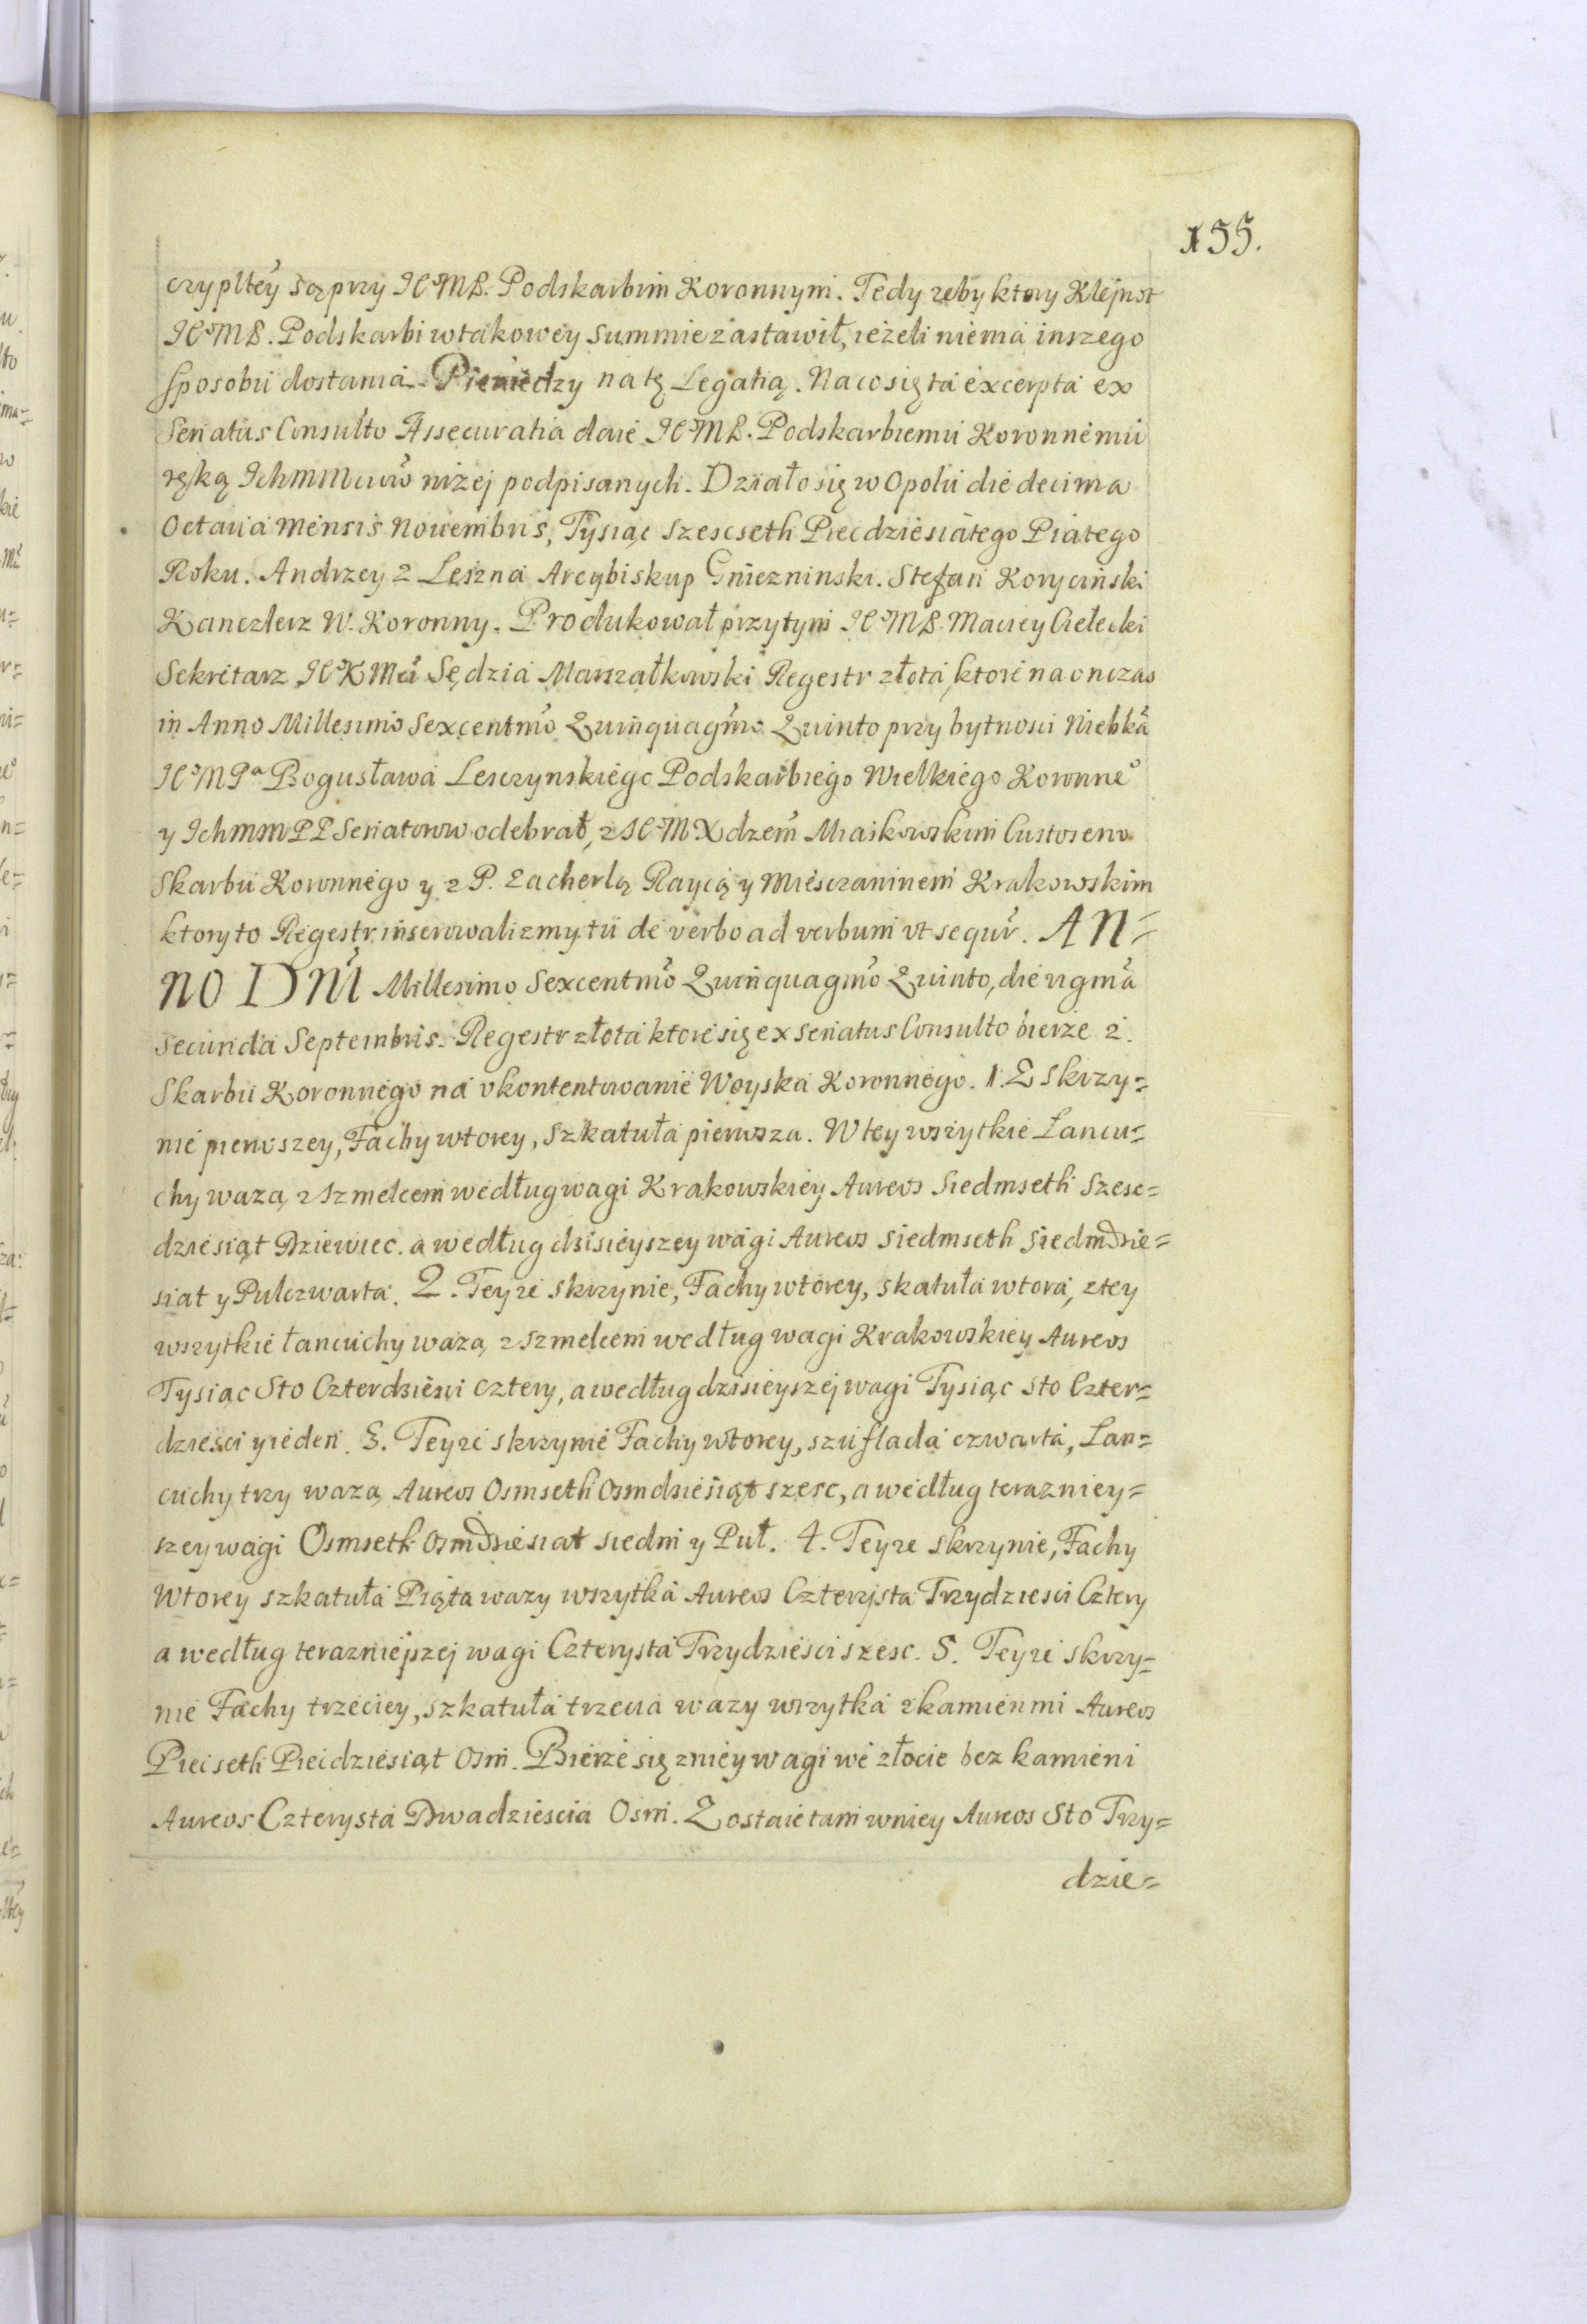 155.
czypltey są przy JEMP. Podskarbim Koronnym. Tedy zeby ktory Klejnot
JEMP. Podskarbi w takowey Summie zastawił, ieżeli niema inszego
sposobu dostania Pieniedzy na tę Legatią. Na co się ta excerpta ex
Senatus Consulto Assecuratia daie JEMP. Podskarbiemu Koronnemu
ręką Ichmmciuw niżej podpisanych. Działo się w Opolu die decima
Octaua mensis Nouembris, Tysiąc szescseth Piecdziesiatego Piatego
Roku. Andrzey z Leszna Arcybiskup Gniezninski. Stefan Koryciński
Kanczlerz W. Koronny. Produkował przytym JEMP. Maciey Cielecki
Sekretarz JEKMci Sędzia Marszałkowski Regestr złota, ktore na onczas
in Anno Millesimo Sexcentmo Quinquagmo Quinto przy bytnosci Niebka
JEMPa Bogusława Lesczynskiego Podskarbiego Wielkiego Koronneo
y Ichmm PP Senatorow odebrał, z JEMXdzem Miaskowskim Custosem
Skarbu Koronnego y z P. Zacherlą Raycą y Miesczaninem Krakowskim
ktory to Regestr inserowalizmy tu de verbo ad verbum vt sequr. AN=
NO DNI Millesimo Sexcentmo Quinquagmo Quinto, die vigma
secunda Septembris. Regestr złota ktore się ex Senatus Consulto bierze z
Skarbu Koronnego na vkontentowanie Woyska Koronnego. 1. Z Skrzy=
nie pierwszey, Fachy wtorey, Szkatuła pierwsza. W tey wszytkie Łancu=
chy waza, z szmelcem według wagi Krakowskiey Aureos Siedmseth Szesc=
dziesiąt Dziewiec. a według dzisieyszey wagi Aureos siedmseth siedmdzie=
siat y Pulczwarta. 2. Teyze skrzynie, Fachy wtorey, skatuła wtora, z tey
wszytkie łancuchy waza, z szmelcem według wagi Krakowskiey Aureos
Tysiąc Sto Czterdziesci cztery, a według dzisieyszej wagi Tysiąc sto Czter=
dziesci y ieden. 3. Teyze skrzynie Fachy wtorey, szuflada czwarta, Lan=
cuchy trzy waza, Aureos Osmseth Osmdziesiąt szesc, a według terazniey=
szey wagi Osmseth Osmdziesiat siedm y Puł. 4. Teyze skrzynie, Fachy
Wtorey szkatuła Piąta wazy wszytka Aureos Czterysta Trzydziesci Cztery
a według terazniejszej wagi Czterysta Trzydziesci szesc. 5. Teyze skrzy=
nie Fachy trzeciey, szkatuła trzecia wazy wszytka z kamienmi Aureos
Piecseth Piecdziesiąt Osm. Bierze się z niey wagi we złocie bez kamieni
Aureos Czterysta Dwadziescia Osm. Zostaie tam w niey Aureos Sto Trzy=
dzie=